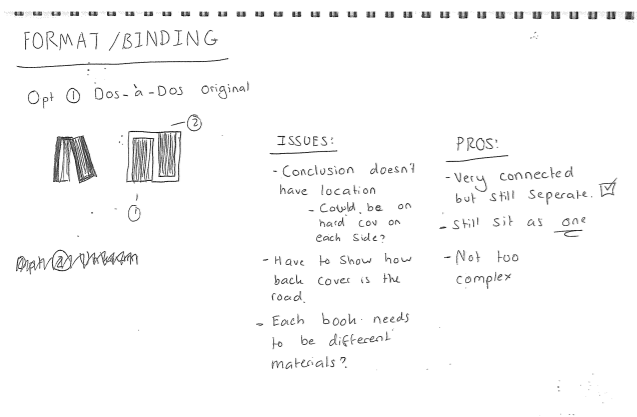 FORMAT/BINDING
Opt ① Dos-à-Dos original
②
①
ISSUES:
- Conclusion doesn't
have location
- Could be on
hard cov on
each side?
- Have to show how
back cover is the
road.
- Each book needs
to be different
materials?
PROS:
- Very connected
but still seperate. ☑
- Still sit as one
- Not too
complex